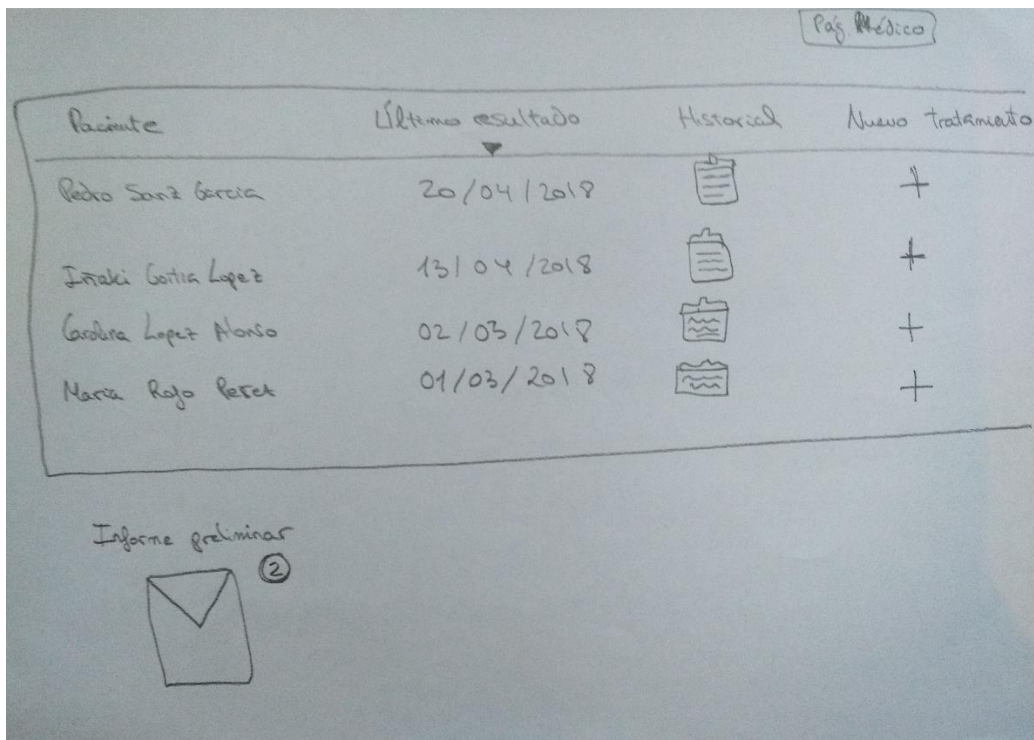 Pág Médico
Paciente Último resultado Historial Nuevo tratamiento
Pedro Sanz Garcia 20/04/2018 +
Iñaki Goitia Lopez 13/04/2018 +
Carolina Lopez Alonso 02/03/2018 +
Maria Rojo 01/03/2018 +
Informe preliminar
2